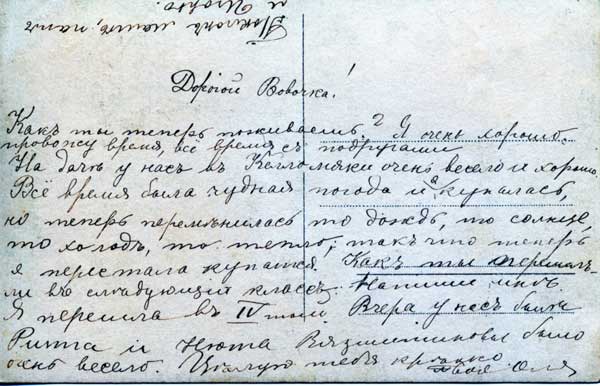 Дорогой Вовочка!
Какъ ты теперь поживаешь? Я очень хорошо
провожу время, всё время съ подругами
На дачѣ у насъ въ Келломяки очень весело и хорошо.
Всё время была чудная погода и я купалась,
но теперь перемѣнилась то дождь, то солнце,
то холодъ, то тепло, такъ что теперь
я перестала купаться. Какъ ты перешелъ-
ли въ слѣдующий классъ? Напиши мнѣ.
Я перешла въ IV Вчера у насъ были
Римма и Нюта Вязмитиновы было
очень весело. Цѣлую тебя крѣпко
твоя Оля
Поклонъ мамѣ, папѣ
и